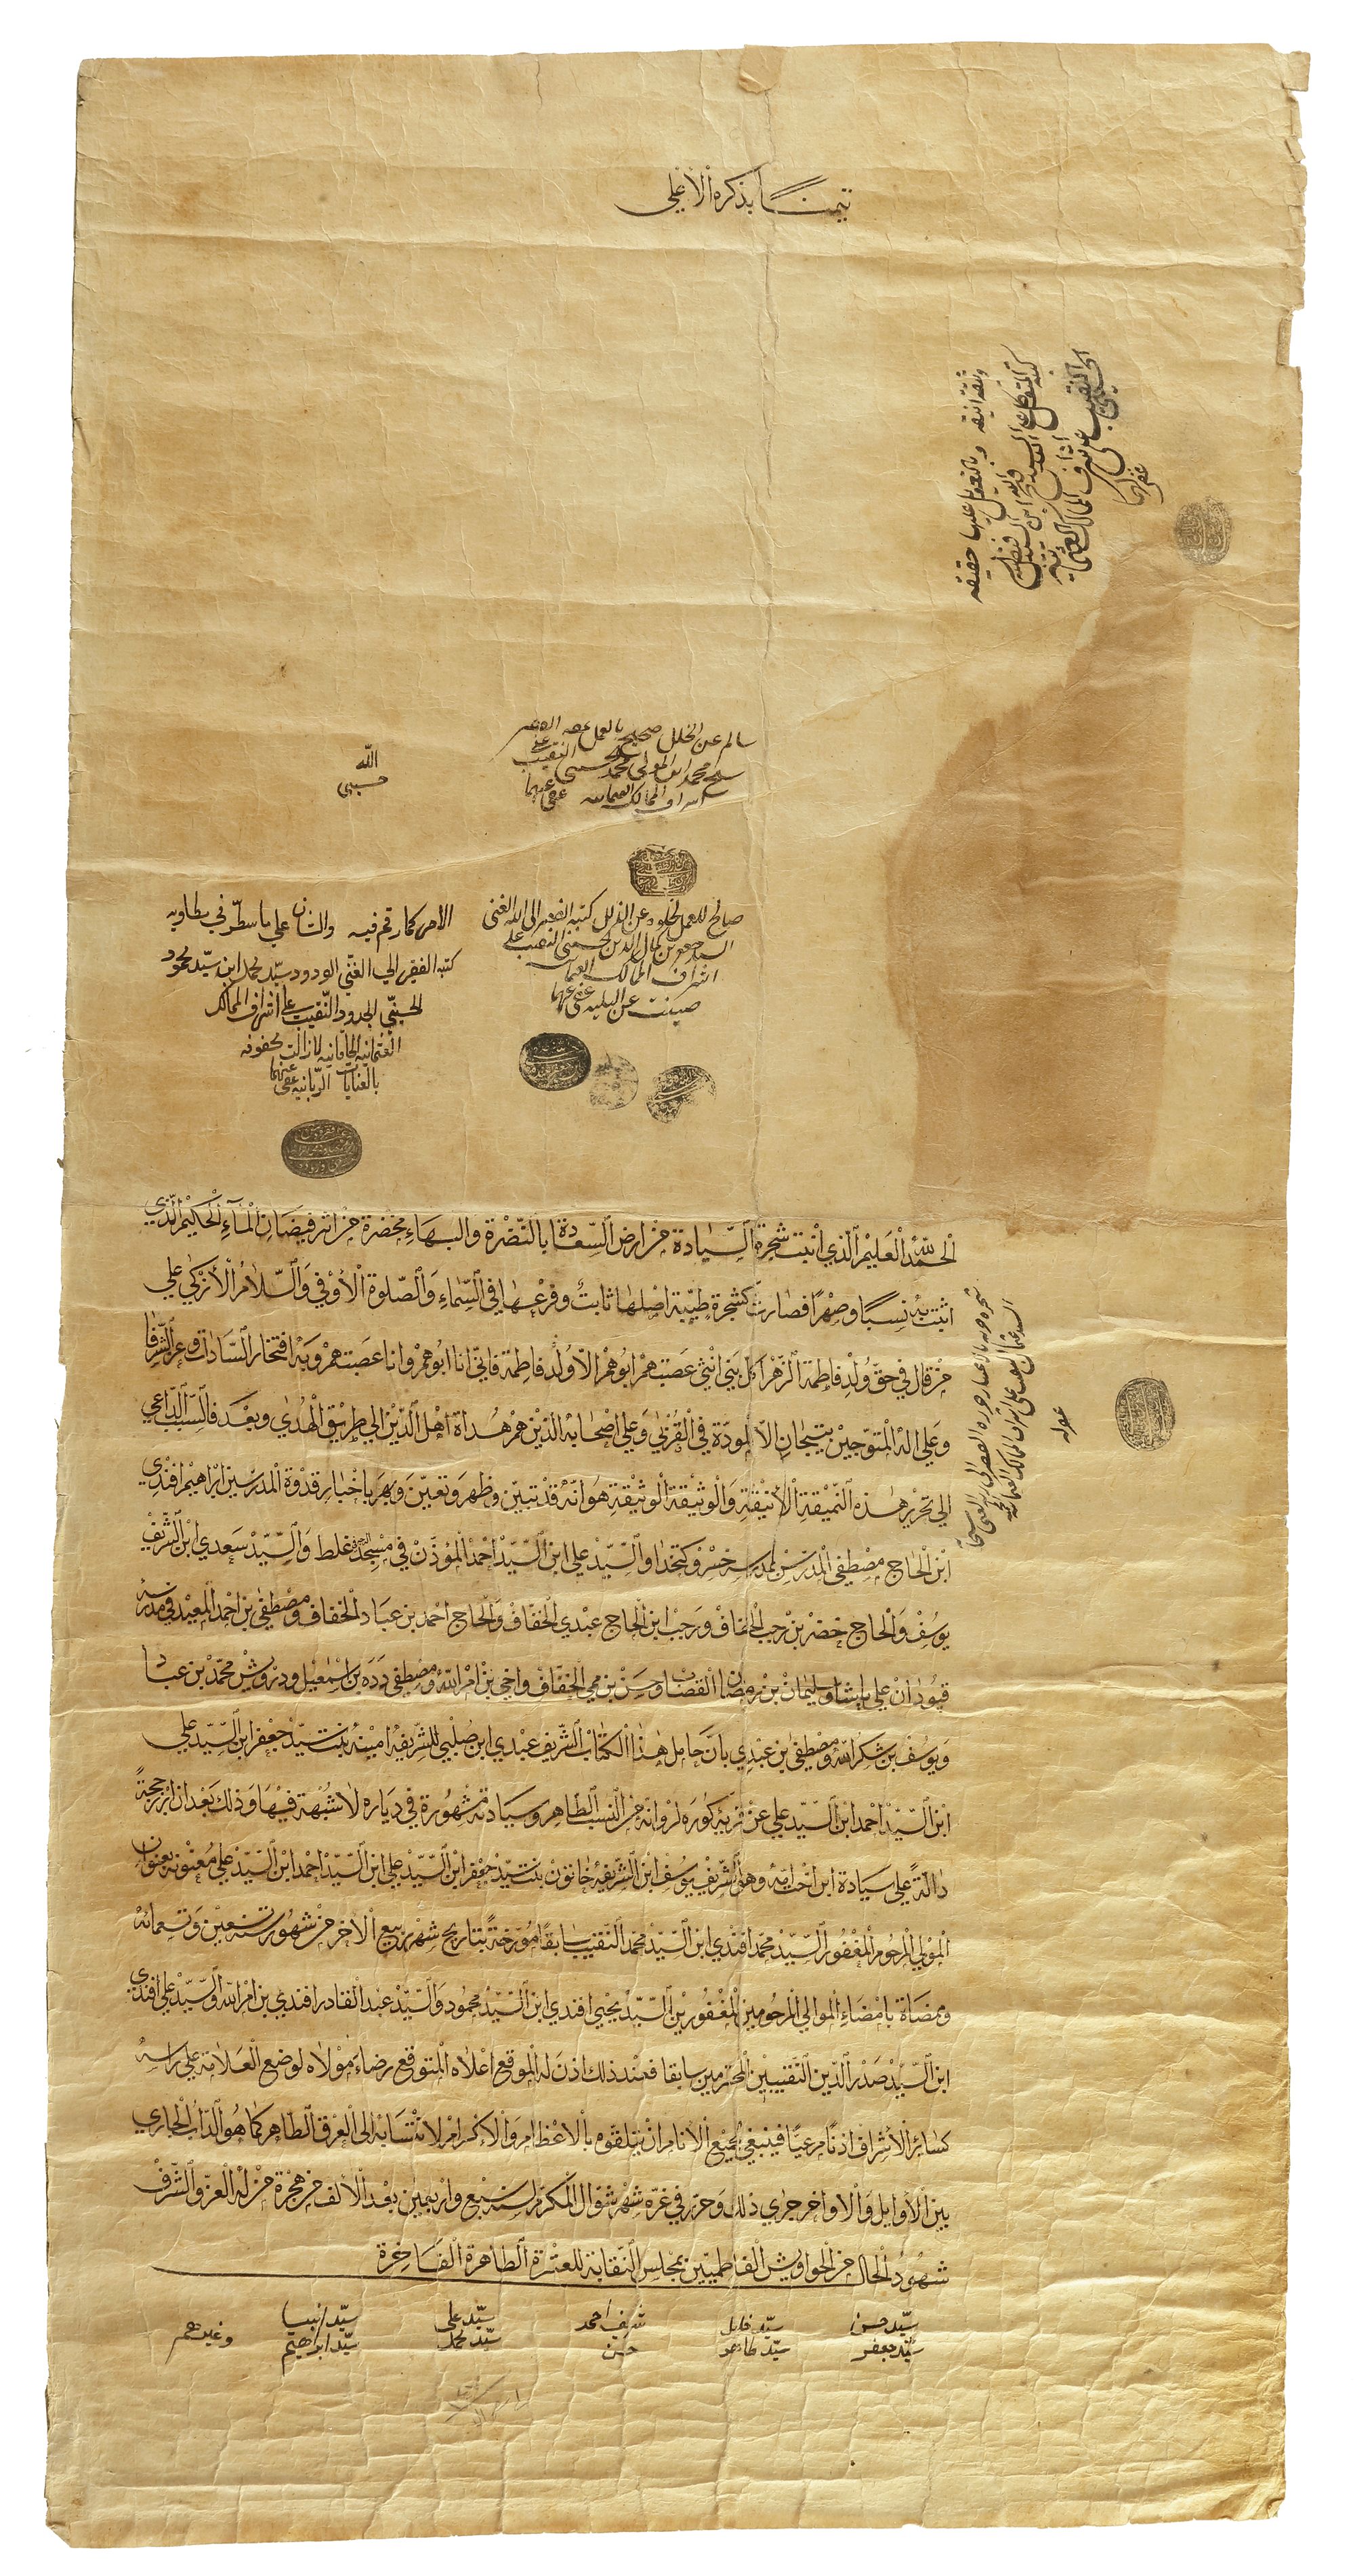 تيمنا بذكره الأعلى
وثيقة انيقه وبالتعويل عليها حقيقه
النقيب على اشراف الممالك العثمانية
غفر لهما
سالم عن الخلل صحيح بالعمل نمقه الفقير
محمد ابن المولى محمد الحسيني النقيب على
اشراف الممالك العثمانيه عفى عنهما
الله
حسبي
صالح للعمل لخلوه عن الزلل كتبه الفقير الى الله الغني
السيد جعفر بن كمال الدين الحسيني النقيب على
اشراف الممالك العثمانيه
صينت عن البليه عفى عنهما
الامر كما رقم فيه والشان على ما سطر في مطاويه
كتبه الفقير الي الغني الودود سيد محمد ابن سيد محمود
الحسيني الجدود النقيب على اشراف الممالك
العثمانيه الخاقانيه لا زالت محفوفه
بالعنايات الربانيه عفى عنهما
الحمد لله العليم الذي أنبت شجرة السيادة من ارض السعادة بالنضرة والبهاء مخضرة من اثر فيضان الماء الحكيم الذي
اثبت به نسبا وصهرا فصارت كشجرة طيبة اصلها ثابت وفرعها في السماء والصلوة الأوفي والسلام الأزكي علي
من قال في حق ولد فاطمة الزهرا كل بني انثي عصبتهم ابوهم الا ولد فاطمة فاني انا ابوهم وانا عصبتهم وبه افتخار السادات وعز الشرفا
وعلي اله المتوجين بتيجان الا المودة في القربي وعلي اصحابه الذين هم هداة اهل الدين الي طريق الهدي وبعد فالسبب الداعي
الي تحرير هذه النميقة الأنيقة والوثيقة الوثيقة هو انه قد تبين وظهر وتعين وبهر باخبار قدوة المدرسين ابراهيم افندي
ابن الحاج مصطفي المدرس بمدرسه خسرو كتخدا والسيد علي ابن السيد احمد المؤذن في مسجد غلط والسيد سعدي ابن الشريف
يوسف والحاج خضر بن رجب الخفاف ورجب ابن الحاج عبدي الخفاف والحاج احمد بن عباد الخفاف ومصطفي بن احمد المعيد في مدرسه
قپودان علي پاشا وسليمان بن رمضان القصاب وحسن بن الخفاف واخي بن امر الله ومصطفي دده بن اسمعيل ودرويش محمد بن عباد
ويوسف بن شكر الله ومصطفي بن عبدي بان حامل هذا الكتاب الشريف عبدي ابن صلبي للشريفه امينه بنت سيد جعفر ابن السيد علي
ابن السيد احمد ابن السيد علي عن قريه من النسب الطاهر وسيادته مشهورة في دياره لا شبهة فيها وذلك بعد ان ابرز حجة
دالة علي سيادة ابن اخت امه وهو الشريف يوسف ابن الشريفه خاتون بنت سيد جعفر ابن السيد علي ابن السيد احمد ابن السيد علي معنونه بعنوان
المولي المرحوم المغفور السيد محمد افندي ابن السيد محمد النقيب سابقا مؤرخة بتاريخ شهر ربيع الاخر من شهور سنه وتسعمائه
وممضاة بامضاء الموالي المرحومين المغفورين السيد يحيي افندي ابن السيد محمود والسيد عبد القادر افندي بن امر الله والسيد علي افندي
ابن السيد صدر الدين النقيبين المحترمين سابقا فعند ذلك اذن له الموقع اعلاه المتوقع رضاء مولاه لوضع العلامة علي راسه
كسائر الأشراف اذنا مرعيا فينبغي لجميع الأنام ان يتلقوه بالاعظام والاكرام لانتسابه الى العرق الطاهر كما هو الداب الجاري
بين الأوايل والأواخر جري ذلك وحرر في غرة شهر شوال المكرم لسنه سبع واربعين بعد الألف من هجرة من له العز والشرف
شهود الحال من الجواويش الفاطميين بمجلس النقابة للعترة الطاهرة الفاخرة
سيد حسن سيد خليل شريف احمد سيد علي سيد
سيد جعفر سيد طاهر حسن سيد محمد سيد ابراهيم وغيرهم